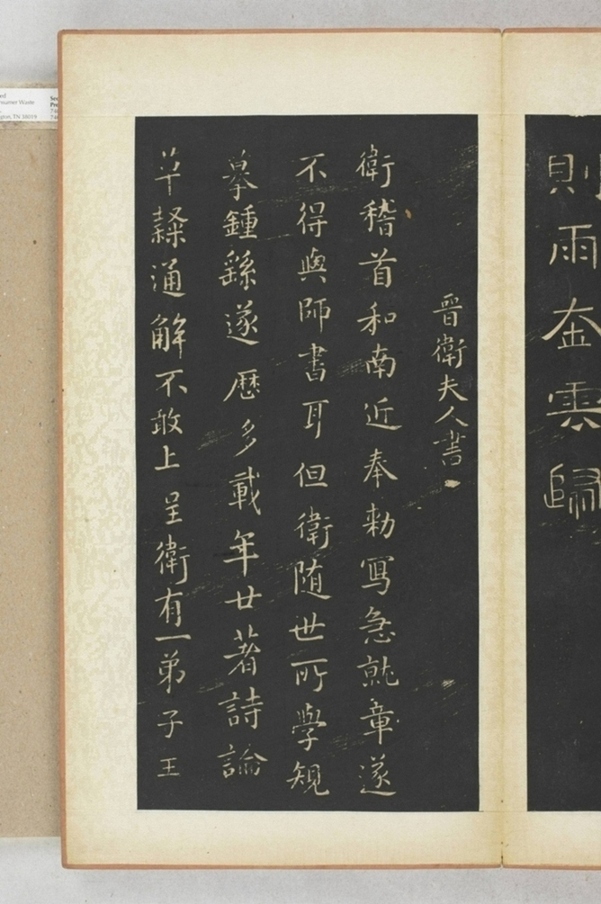 則雨奎雲歸
晉衛夫人書
衛稽首和南近奉勑寫急就章遂
不得與師書耳但衛随世所學規
摹鍾繇遂歷多載年廿著詩論
草隸通解不敢上呈衛有一弟子王